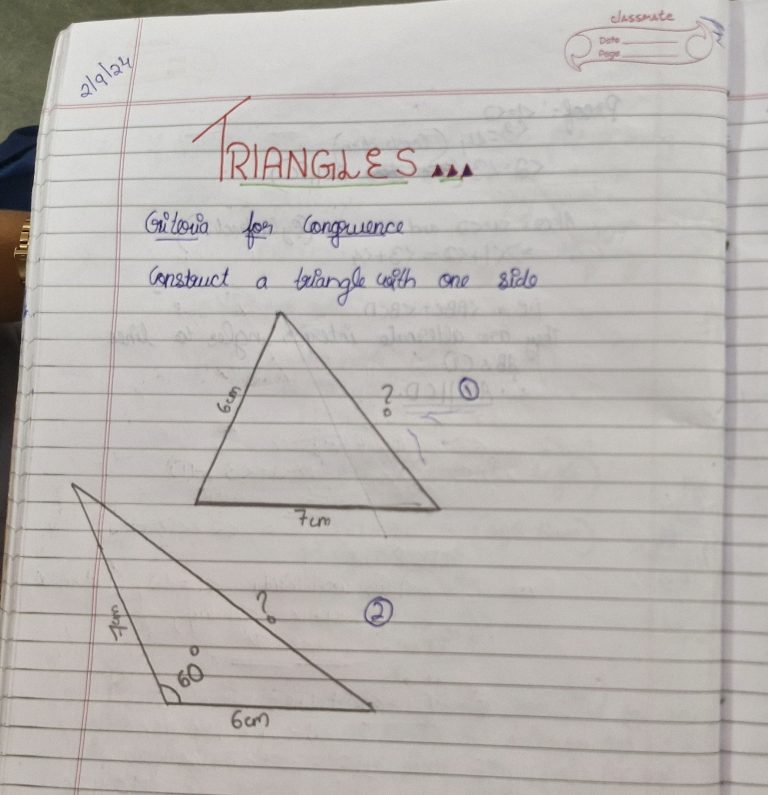 classmate
Date
Page
2/9/24
TRIANGLES...
Criteria for Congruence
Construct a triangle with one side
6cm
?
①
7cm
7cm
?
②
60°
6cm